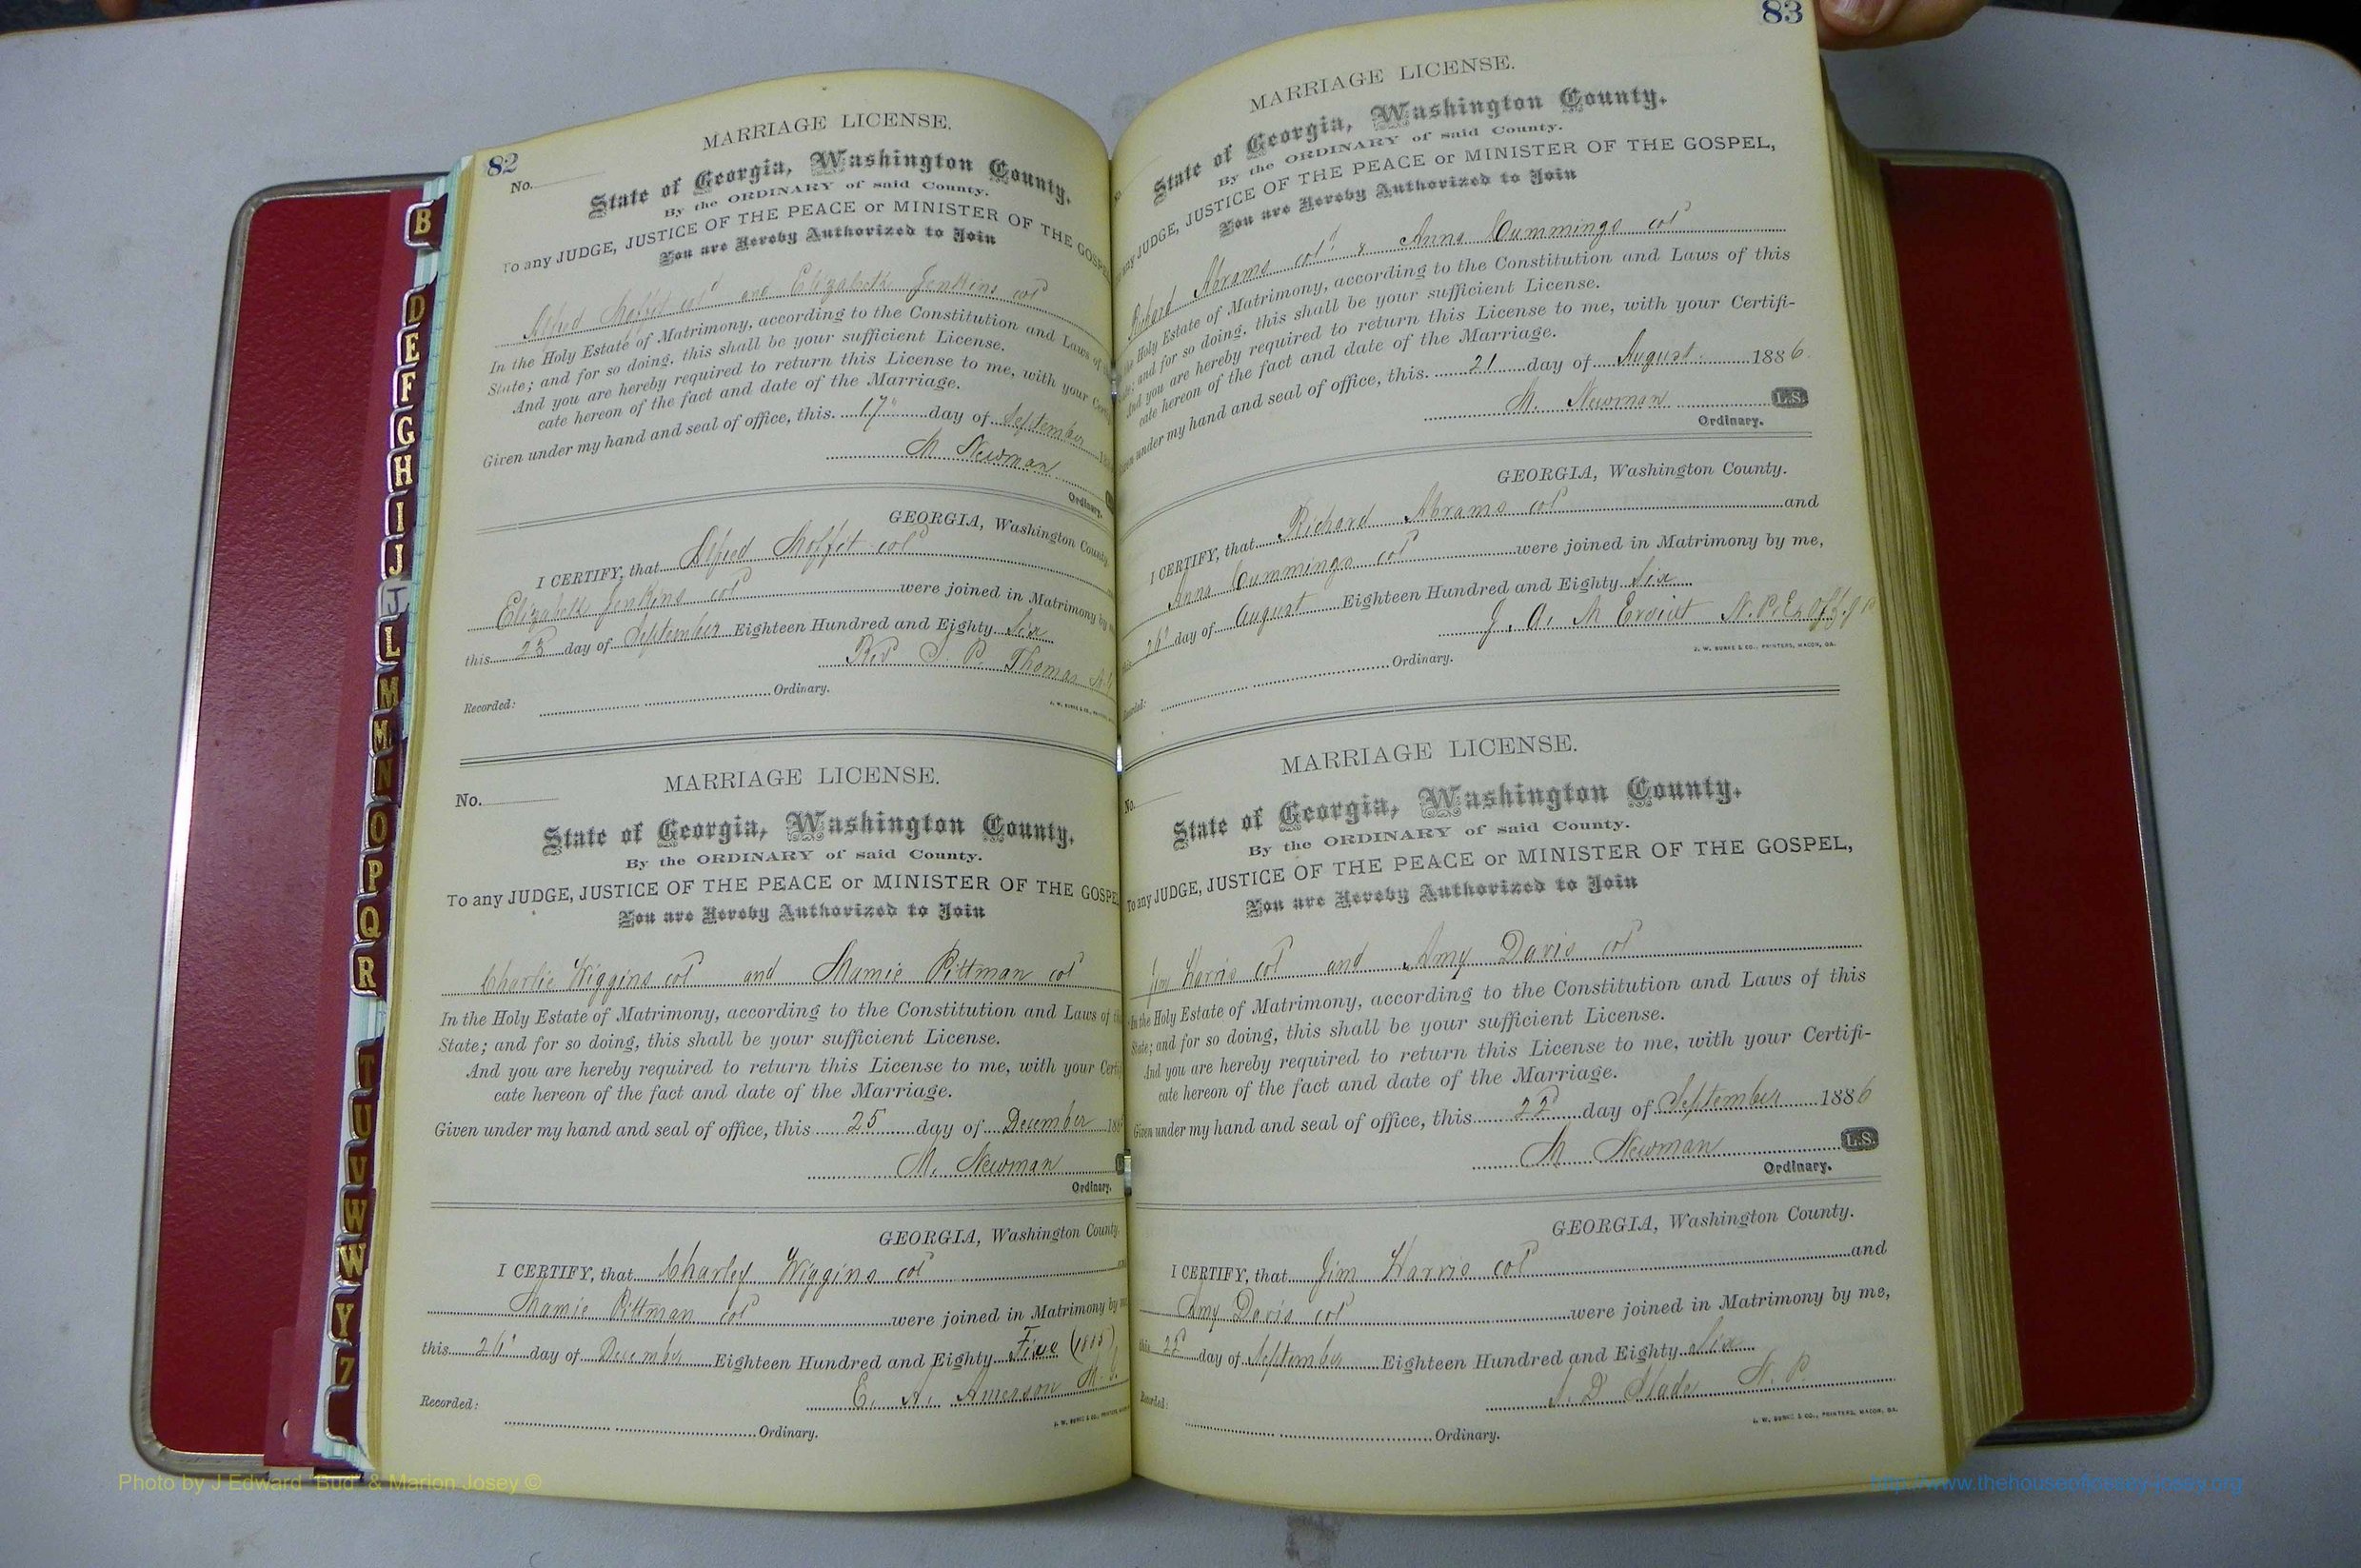 82
MARRIAGE LICENSE.
No.
State of Georgia, Washington County.
By the ORDINARY of said County.
To any JUDGE, JUSTICE OF THE PEACE or MINISTER OF THE GOSPEL
You are Hereby Authorized to Join
Alfred Moffit col and Elizabeth Jenkins col
In the Holy Estate of Matrimony, according to the Constitution and Laws of
State; and for so doing, this shall be your sufficient License.
And you are hereby required to return this License to me, with your
cate hereon of the fact and date of the Marriage.
Given under my hand and seal of office, this 17" day of September
M Newman
Ordinary.
GEORGIA, Washington County
I CERTIFY, that Alfred Moffit col
Elizabeth Jenkins col were joined in Matrimony by
this 23 day of September Eighteen Hundred and Eighty Six
Rev P. Thomas
Recorded: Ordinary.
MARRIAGE LICENSE.
No.
State of Georgia, Washington County.
By the ORDINARY of said County.
To any JUDGE, JUSTICE OF THE PEACE or MINISTER OF THE GOSPEL
You are Hereby Authorized to Join
Charlie Wiggins col and Mamie Pittman col
In the Holy Estate of Matrimony, according to the Constitution and Laws of
State; and for so doing, this shall be your sufficient License.
And you are hereby required to return this License to me, with your Certi
cate hereon of the fact and date of the Marriage.
Given under my hand and seal of office, this 25 day of December 188
M. Newman
Ordinary.
GEORGIA, Washington County.
I CERTIFY, that Charley Wiggins col
Mamie Pittman col were joined in Matrimony by
this 26" day of December Eighteen Hundred and Eighty Five (1885)
E. A. Amerson M.G.
Recorded: Ordinary.
83
MARRIAGE LICENSE.
State of Georgia, Washington County.
By the ORDINARY of said County.
any JUDGE, JUSTICE OF THE PEACE or MINISTER OF THE GOSPEL,
You are Hereby Authorized to Join
Richard Abrams col & Anna Cummings col
the Holy Estate of Matrimony, according to the Constitution and Laws of this
State; and for so doing, this shall be your sufficient License.
And you are hereby required to return this License to me, with your Certifi-
cate hereon of the fact and date of the Marriage.
Given under my hand and seal of office, this 21 day of August 1886.
M. Newman L.S.
Ordinary.
GEORGIA, Washington County.
I CERTIFY, that Richard Abrams col and
Anna Cummings col were joined in Matrimony by me,
this 26" day of August Eighteen Hundred and Eighty Six
J. A. M N.P. & Ex Off. J P
Recorded: Ordinary.
J. W. BURKE & CO., PRINTERS, MACON, GA.
MARRIAGE LICENSE.
No.
State of Georgia, Washington County.
By the ORDINARY of said County.
To any JUDGE, JUSTICE OF THE PEACE or MINISTER OF THE GOSPEL,
You are Hereby Authorized to Join
Jim Harris col and Amy Davis col
In the Holy Estate of Matrimony, according to the Constitution and Laws of this
State; and for so doing, this shall be your sufficient License.
And you are hereby required to return this License to me, with your Certifi-
cate hereon of the fact and date of the Marriage.
Given under my hand and seal of office, this 22 day of September 1886
M Newman L.S.
Ordinary.
GEORGIA, Washington County.
I CERTIFY, that Jim Harris col and
Amy Davis col were joined in Matrimony by me,
this 22 day of September Eighteen Hundred and Eighty Six
D Slade N. P.
Recorded: Ordinary.
J. W. BURKE & CO., PRINTERS, MACON, GA.
B
D
E
F
G
H
I
J
J
L
M
M
N
O
P
Q
R
T
U
V
W
W
Y
Z
Photo by J Edward "Bud" & Marion Josey ©